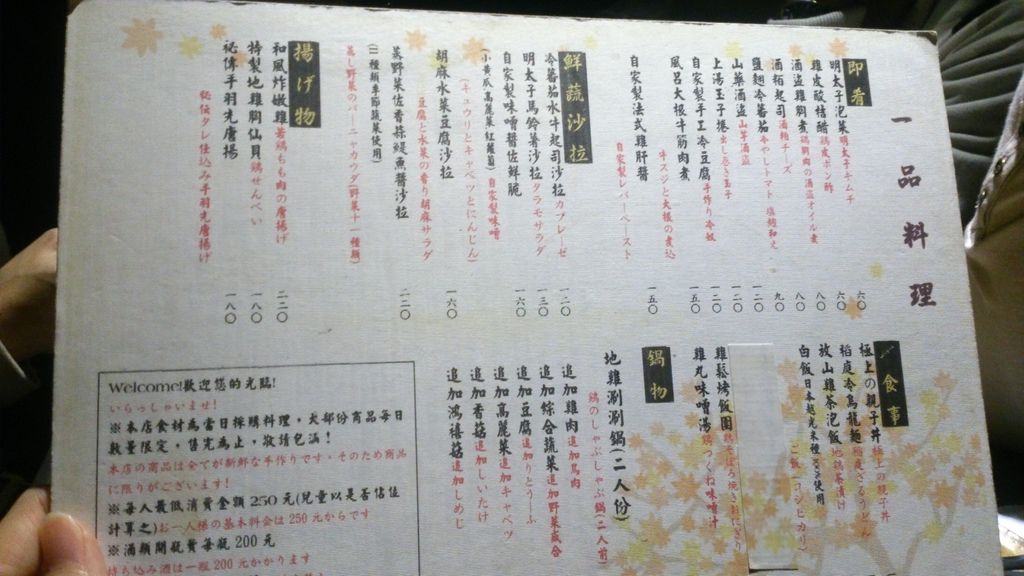 一品料理
即肴
明太子泡菜 明太子キムチ 六〇
雞皮酸桔醋 鶏皮ポン酢 六〇
酒盜雞胸煮 鶏胸肉の酒盗オイル煮 八〇
酒粕起司 酒粕チーズ 八〇
鹽麴冷蕃茄 冷やしトマト 塩麹和え 九〇
山藥酒盜 山芋酒盗 一二〇
上湯玉子捲 出し巻き玉子 一二〇
自家製手工冷豆腐 手作り冷奴 一二〇
風呂大根牛筋肉煮 牛スジと大根の煮込 一五〇
自家製法式雞肝醬 自家製レバーペースト 一五〇
鮮蔬沙拉
冷蕃茄水牛起司沙拉 カプレーゼ 一二〇
明太子馬鈴薯沙拉 タラモサラダ 一三〇
自家製味噌醬佐鮮脆 自家製味噌 一六〇
(小黃瓜高麗菜紅蘿蔔)
(キュウリとキャベツとにんじん)
胡麻水菜豆腐沙拉 一六〇
豆腐と水菜の香り胡麻サラダ
蒸野菜佐香蒜鯷魚醬沙拉 二二〇
(二種類季節蔬菜使用)
蒸し野菜のバーニャカウダ(野菜十一種類)
揚げ物
和風炸嫩雞 若鶏もも肉の唐揚げ 二二〇
特製地雞胸仙貝 鶏せんべい 一八〇
祕傳手羽先唐揚 一八〇
秘伝タレ仕込み手羽先唐揚げ
食事
極上の親子丼 極上の親子丼
稻庭冷烏龍麵 稲庭ざるうどん
放山雞茶泡飯 地鶏茶漬け
白飯 日本越光米種100%使用
ご飯(コシヒカリ)
雞鬆烤飯團 鶏そぼろ焼きおにぎり
雞丸味噌湯 鶏つくね味噌汁
鍋物
地雞涮涮鍋(二人份)
鶏のしゃぶしゃぶ鍋(二人前)
追加雞肉 追加鳥肉
追加綜合蔬菜 追加野菜盛合
追加豆腐 追加りとうーふ
追加高麗菜 追加キャベツ
追加香菇 追加しいたけ
追加鴻禧菇 追加しめじ
Welcome!歡迎您的光臨!
いらっしゃいませ!
※本店食材為當日採購料理，大部份商品每日
數量限定，售完為止，敬請包涵!
本店の商品は全てが新鮮な手作りです。そのため商品
に限りがございます!
※每人最低消費金額 250 元(兒童以是否佔位
計算之)お一人様の基本料金は 250 元からです
※酒類開瓶費每瓶 200 元
持ち込み酒は一瓶 200 元かかります